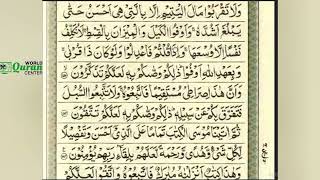 WORLD
Quran
CENTER
وَلَا تَقْرَبُوا مَالَ الْيَتِيْمِ اِلَّا بِالَّتِيْ هِيَ اَحْسَنُ حَتّٰى
يَبْلُغَ اَشُدَّهٗ وَاَوْفُوا الْكَيْلَ وَ الْمِيْزَانَ بِالْقِسْطِ لَا نُكَلِّفُ
نَفْسًا اِلَّا وُسْعَهَا وَاِذَا قُلْتُمْ فَاعْدِلُوْا وَلَوْ كَانَ ذَا قُرْبٰى
وَبِعَهْدِ اللّٰهِ اَوْفُوْا ذٰلِكُمْ وَصّٰىكُمْ بِهٖ لَعَلَّكُمْ تَذَكَّرُوْنَ
وَاَنَّ هٰذَا صِرَاطِيْ مُسْتَقِيْمًا فَاتَّبِعُوْهُ وَلَا تَتَّبِعُوا السُّبُلَ
فَتَفَرَّقَ بِكُمْ عَنْ سَبِيْلِهٖ ذٰلِكُمْ وَصّٰىكُمْ بِهٖ لَعَلَّكُمْ تَتَّقُوْنَ
ثُمَّ اٰتَيْنَا مُوْسَى الْكِتٰبَ تَمَامًا عَلَى الَّذِيْ اَحْسَنَ وَتَفْصِيْلًا
لِّكُلِّ شَيْءٍ وَّهُدًى وَّرَحْمَةً لَّعَلَّهُمْ بِلِقَآءِ رَبِّهِمْ يُؤْمِنُوْنَ
وَهٰذَا كِتٰبٌ اَنْزَلْنٰهُ مُبٰرَكٌ فَاتَّبِعُوْهُ وَاتَّقُوْا لَعَلَّكُمْ